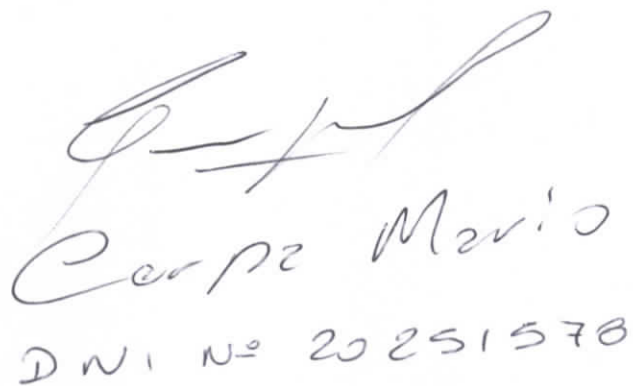 Carpa Mario
DNI Nº 20251578